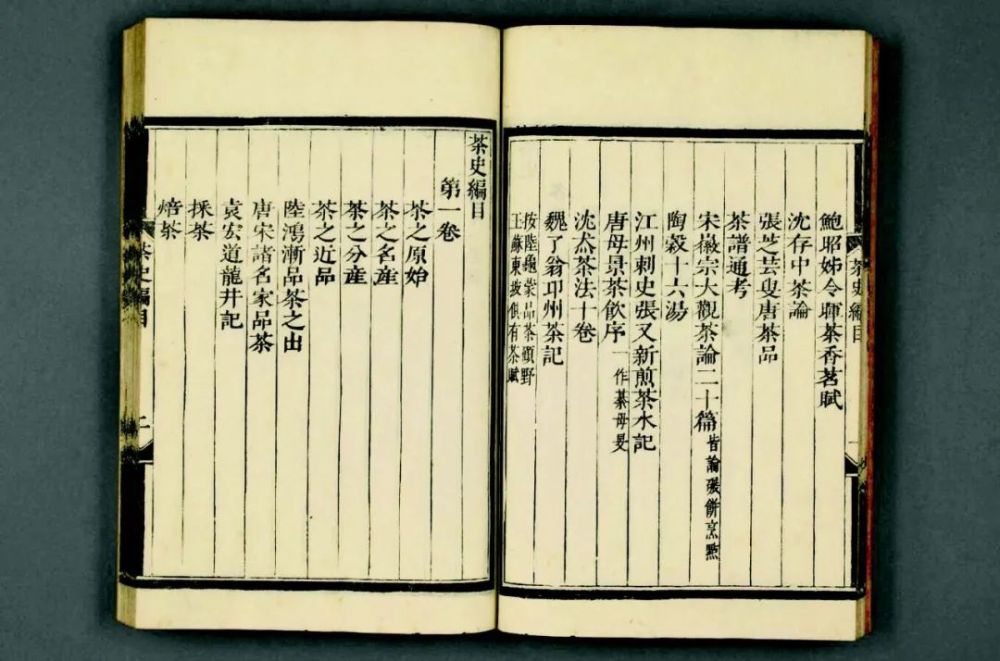 鮑昭姊令暉茶香茗賦
沈存中茶論
張芝芸叟唐茶品
茶譜通考
宋徽宗大觀茶論二十篇 皆論碾餅烹點
陶穀十六湯
江州刺史張又新煎茶水記
唐母景茶飲序 一作綦母旻
沈杰茶法十卷
魏了翁邛州茶記
按陸龜蒙品茶顧野
王蘇東坡俱有茶賦
茶史編目
茶史編目
第一卷
茶之原始
茶之名產
茶之分產
茶之近品
陸鴻漸品茶之出
唐宋諸名家品茶
袁宏道龍井記
採茶
焙茶
茶史編目
二